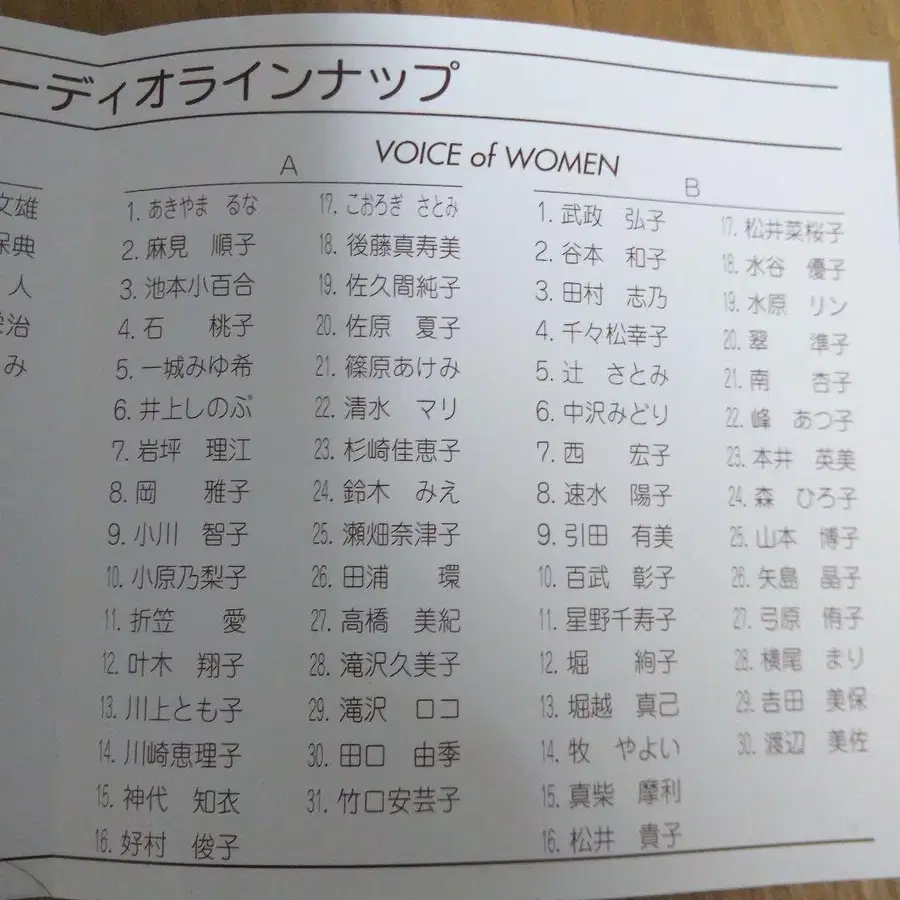 ーディオラインナップ
文雄
保典
人
治
み
VOICE of WOMEN
A
1. あきやま るな
2. 麻見 順子
3. 池本小百合
4. 石 桃子
5. 一城みゆ希
6. 井上しのぶ
7. 岩坪 理江
8. 岡 雅子
9. 小川 智子
10. 小原乃梨子
11. 折笠 愛
12. 叶木 翔子
13. 川上とも子
14. 川崎恵理子
15. 神代 知衣
16. 好村 俊子
17. こおろぎ さとみ
18. 後藤真寿美
19. 佐久間純子
20. 佐原 夏子
21. 篠原あけみ
22. 清水 マリ
23. 杉崎佳恵子
24. 鈴木 みえ
25. 瀬畑奈津子
26. 田浦 環
27. 高橋 美紀
28. 滝沢久美子
29. 滝沢 ロコ
30. 田口 由季
31. 竹口安芸子
B
1. 武政 弘子
2. 谷本 和子
3. 田村 志乃
4. 千々松幸子
5. 辻 さとみ
6. 中沢みどり
7. 西 宏子
8. 速水 陽子
9. 引田 有美
10. 百武 彰子
11. 星野千寿子
12. 堀 絢子
13. 堀越 真己
14. 牧 やよい
15. 真柴 摩利
16. 松井 貴子
17. 松井菜桜子
18. 水谷 優子
19. 水原 リン
20. 翠 準子
21. 南 杏子
22. 峰 あつ子
23. 本井 英美
24. 森 ひろ子
25. 山本 博子
26. 矢島 晶子
27. 弓原 侑子
28. 横尾 まり
29. 吉田 美保
30. 渡辺 美佐